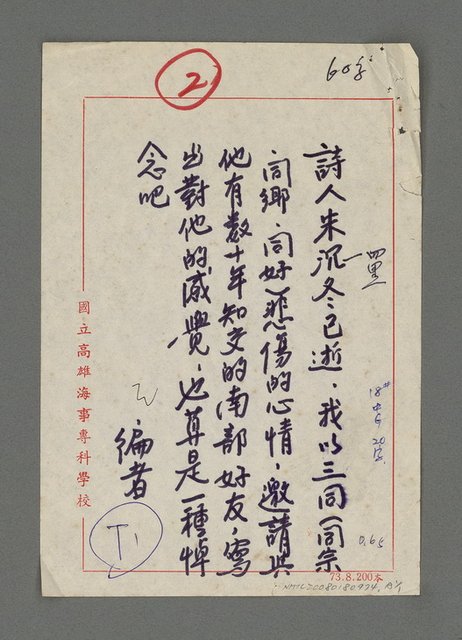 2
60字
詩人朱沉冬已逝，我以三同（同宗
、同鄉、同好）悲傷的心情，邀請與
他有數十年知交的南部好友，寫
出對他的感覺，也算是一種悼
念吧
編者
四黑
18#
20字
0.65
T1
國立高雄海事專科學校
73.8.200本